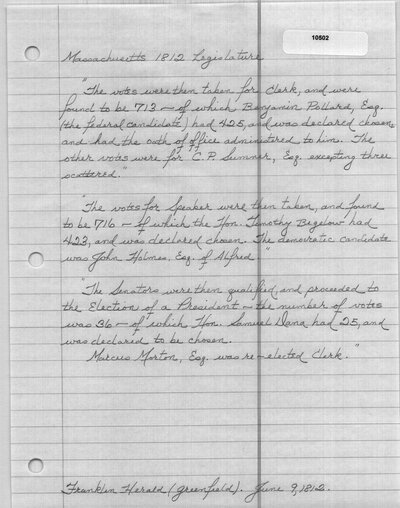 10502
Massachusetts 1812 Legislature
"The votes were then taken for Clerk, and were
found to be 713 – of which Benjamin Pollard, Esq.
(the federal candidate) had 425, and was declared chosen,
and had the oath of office administered to him. The
other votes were for C. P. Sumner, Esq. excepting three
scattered."
"The votes for Speaker were then taken, and found
to be 716 – of which the Hon. Timothy Bigelow had
423, and was declared chosen. The democratic candidate
was John Holmes, Esq. of Alfred."
"The Senators were then qualified, and proceeded to
the Election of a President – the number of votes
was 36 – of which Hon. Samuel Dana had 25, and
was declared to be chosen.
Marcus Morton, Esq. was re-elected Clerk."
Franklin Herald (Greenfield). June 9, 1812.